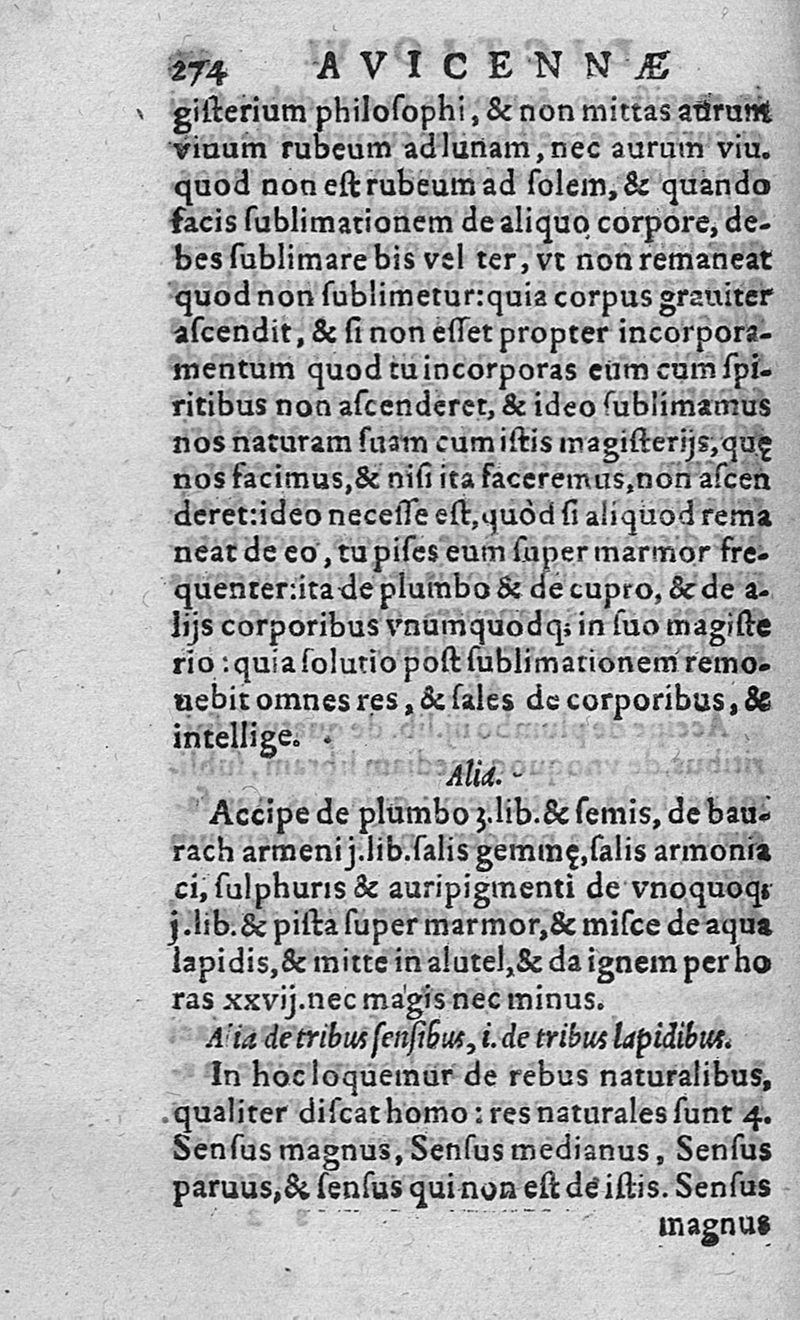 274 AVICENNÆ
giſterium philoſophi, & non mittas aurum
viuum rubeum ad lunam, nec aurum viu.
quod non eſt rubeum ad ſolem, & quando
facis ſublimationem de aliquo corpore, de-
bes ſublimare bis vel ter, vt non remaneat
quod non ſublimetur: quia corpus grauiter
aſcendit, & ſi non eſſet propter incorpora-
mentum quod tu incorporas eum cum ſpi-
ritibus non aſcenderet, & ideo ſublimamus
nos naturam ſuam cum iſtis magiſterijs, quę
nos facimus, & niſi ita faceremus, non aſcen
deret: ideo neceſſe eſt, quòd ſi aliquod rema
neat de eo, tu piſes eum ſuper marmor fre-
quenter: ita de plumbo & de cupro, & de a-
lijs corporibus vnumquodq; in ſuo magiſte
rio: quia ſolutio poſt ſublimationem remo-
uebit omnes res, & ſales de corporibus, &
intellige.
Alia.
Accipe de plumbo ʒ.lib. & ſemis, de bau-
rach armeni j.lib. ſalis gemmę, ſalis armonia
ci, ſulphuris & auripigmenti de vnoquoq;
j.lib. & piſta ſuper marmor, & miſce de aqua
lapidis, & mitte in alutel, & da ignem per ho
ras xxvij. nec magis nec minus.
Alia de tribus ſenſibus, i. de tribus lapidibus.
In hoc loquemur de rebus naturalibus,
qualiter diſcat homo: res naturales ſunt 4.
Senſus magnus, Senſus medianus, Senſus
paruus, & ſenſus qui non eſt de iſtis. Senſus
magnus